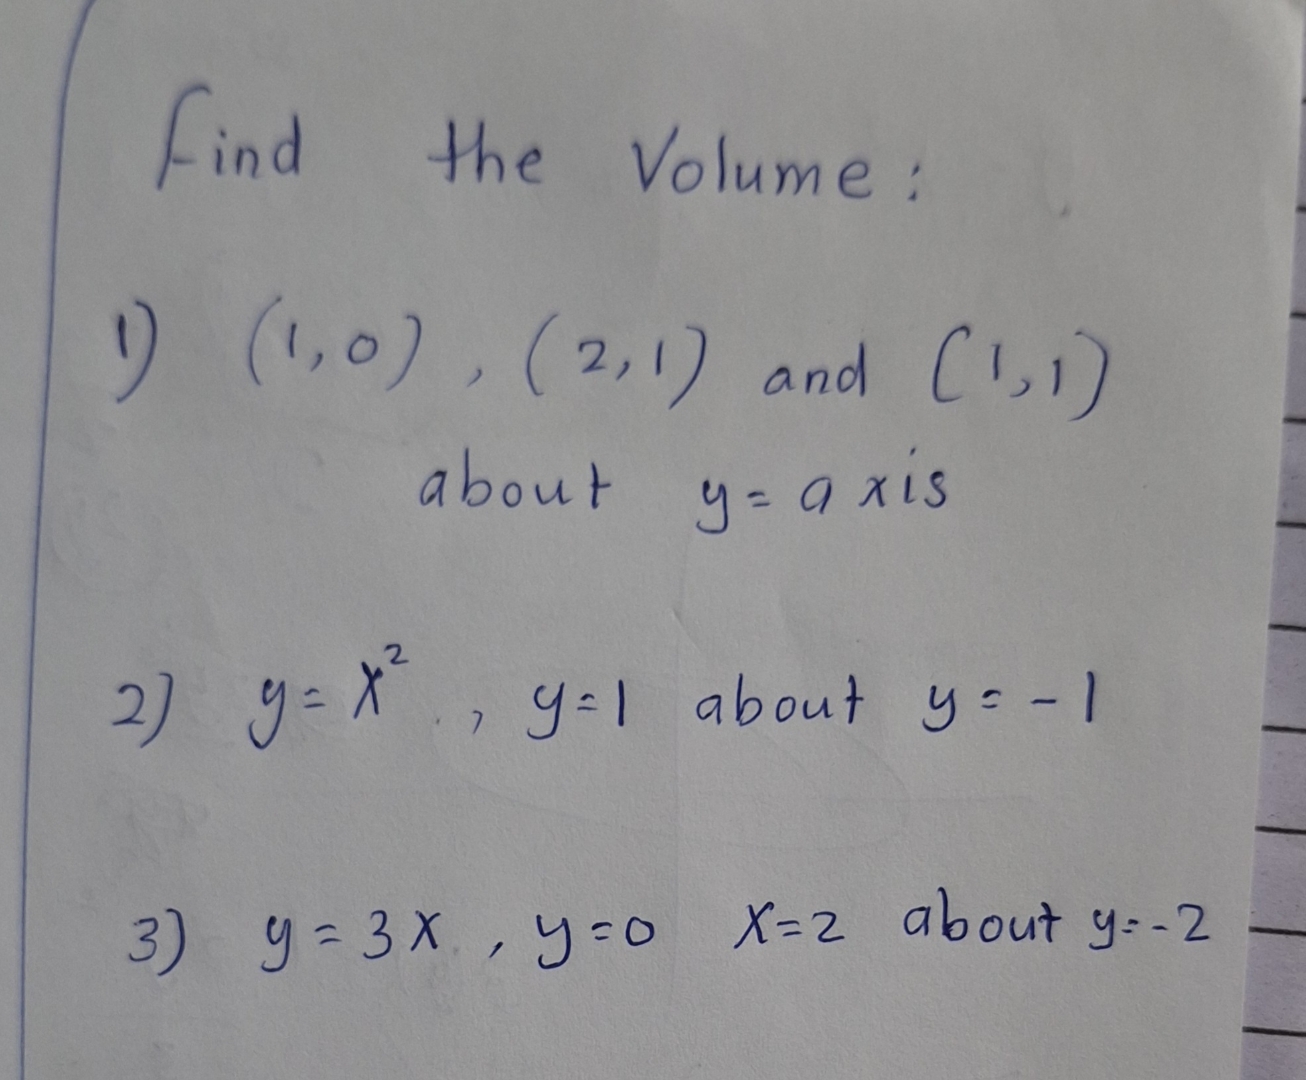 find the Volume:
1) (1,0), (2,1) and (1,1)
about y= axis
2) y=x², y=1 about y=-1
3) y=3x, y=0 x=2 about y=-2